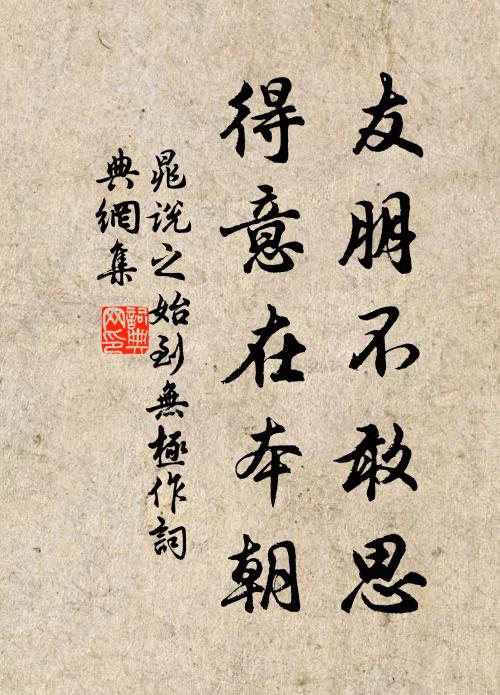 友朋不敢思
得意在本朝
晁說之始到無極作詞
典網集
詞典
网印